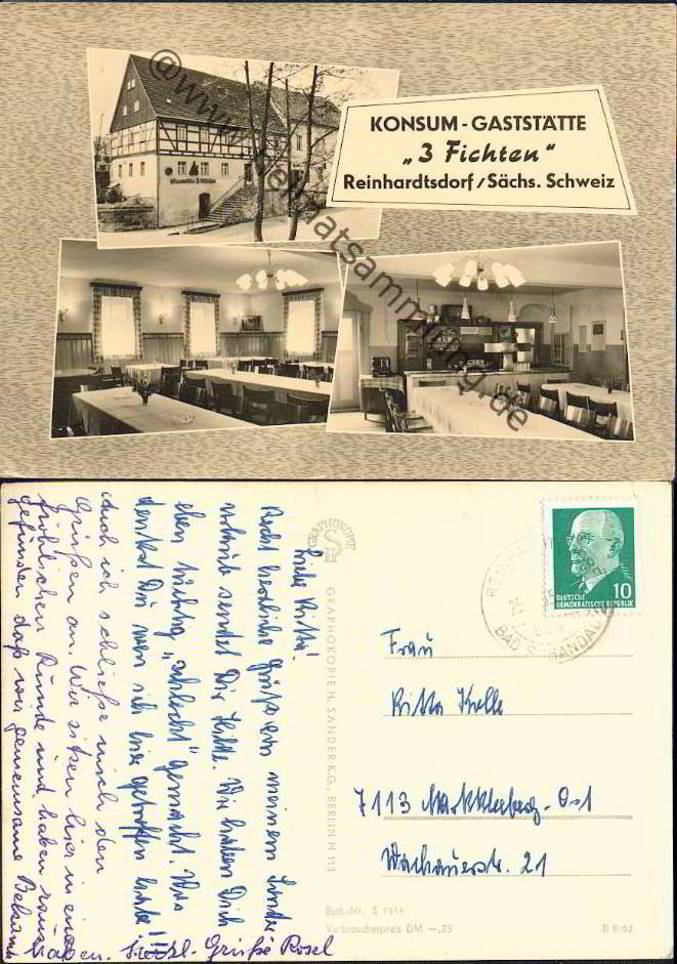 KONSUM-GASTSTÄTTE
„3 Fichten“
Reinhardtsdorf/Sächs. Schweiz
@www.heimatsammlung.de
Liebe Ritta!
Recht herzliche Grüße von meinem
sendet Dir Hilde. Wir haben Dich
eben richtig „schlecht“ gemacht. Was
denkst Du wen ich hier getroffen habe!
Auch ich schließe mich den
Grüßen an. Wir sitzen hier in einer
fröhlichen Runde und haben
gefunden, daß wir gemeinsame
haben. Herzl. Grüße Rosel
GRAPHOKOPIE
GRAPHOKOPIE H. SANDER K.G., BERLIN N 113
DEUTSCHE
DEMOKRATISCHE REPUBLIK
10
BAD SCHANDAU
Frau
Ritta Krelle
7113 Markkleeberg-Ost
Wachauerstr. 21
Best.-Nr. S 1911
Verbraucherpreis DM —,25
B 8/63